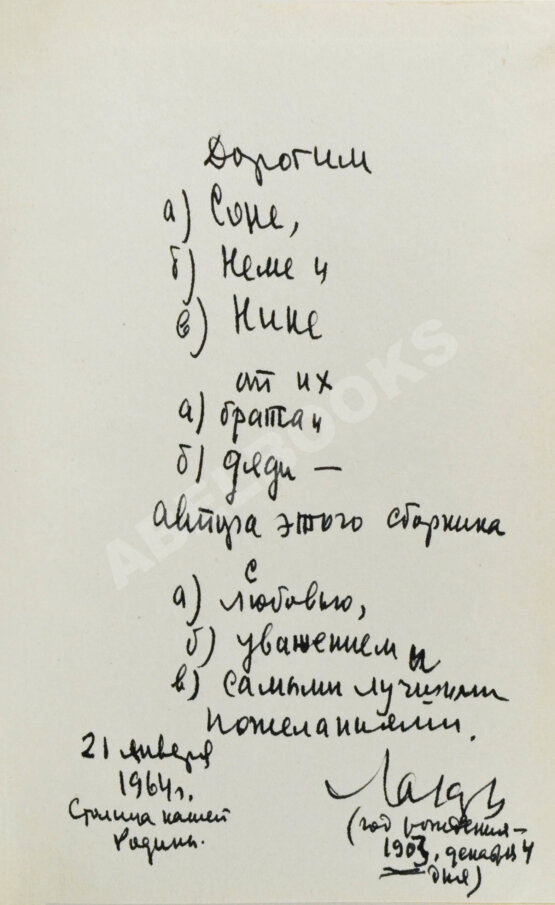 Дорогим
а) Соне,
б) Неме и
в) Нине
от их
а) брата и
б) дяди —
автора этого сборника
с
а) любовью,
б) уважением и
в) самыми лучшими
пожеланиями.
21 января
1964 г.
Столица нашей
Родины.
(год рождения —
1903, декабря 4
дня)
ABELBOOKS